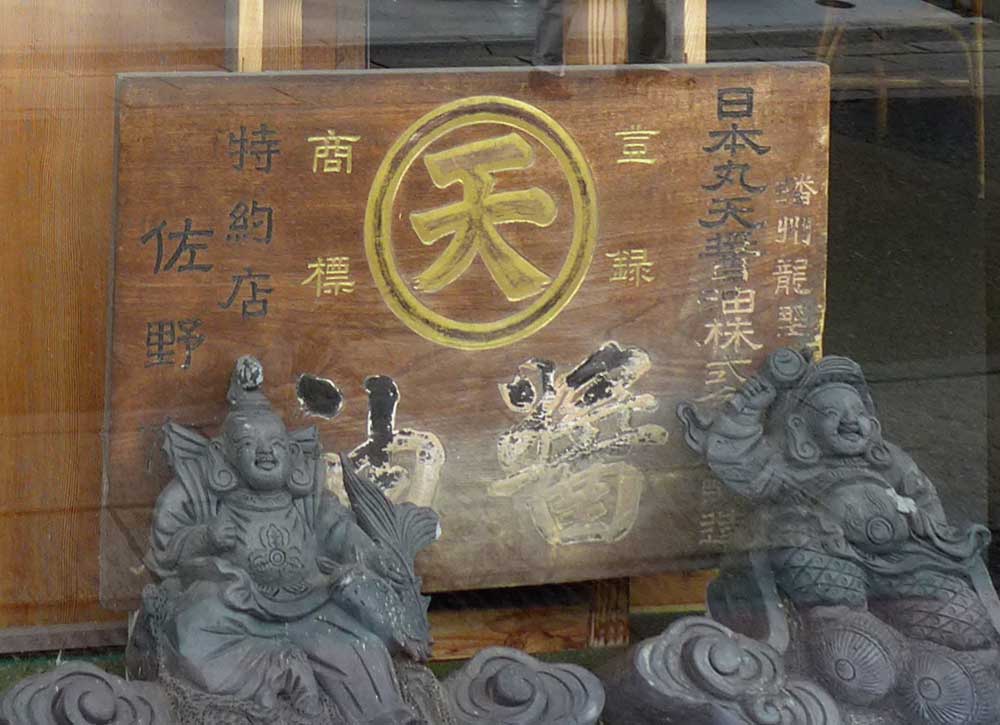 播州龍
日本丸天醬油株式
登録
天
商標
醬油
特約店
佐野